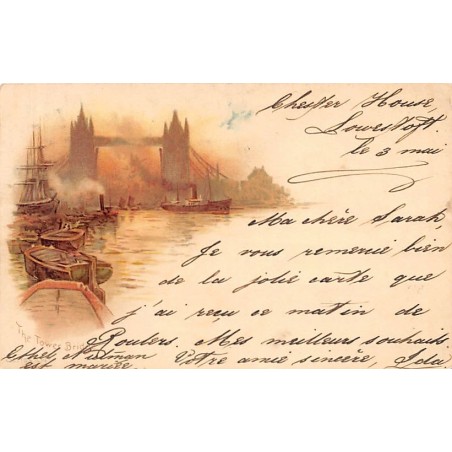 Chester House,
Lowestoft.
le 3 mai
Ma chère Sarah,
Je vous remercie bien
de la jolie carte que
j'ai reçu ce matin de
Roulers. Mes meilleurs souhaits.
Votre amie sincère, Ida.
The Tower Bridge
Ethel
est mariée.